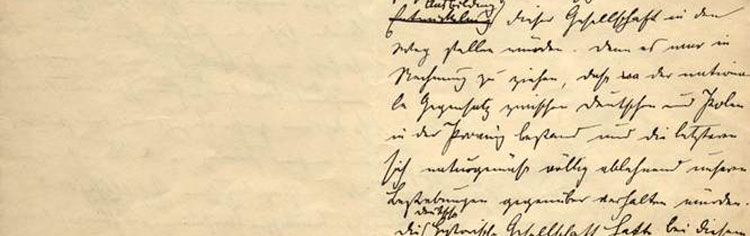 Ausbildung
Entwicklung dieser Gesellschaft in den
Weg stellen würden. Denn es war in
Rechnung zu ziehen, daß der nationa-
le Gegensatz zwischen Deutschen und Polen
in der Provinz bestand und die letzteren
sich naturgemäß völlig ablehnend unseren
Bestrebungen gegenüber verhalten würden.
deutsche
Die Historische Gesellschaft hatte bei diesem